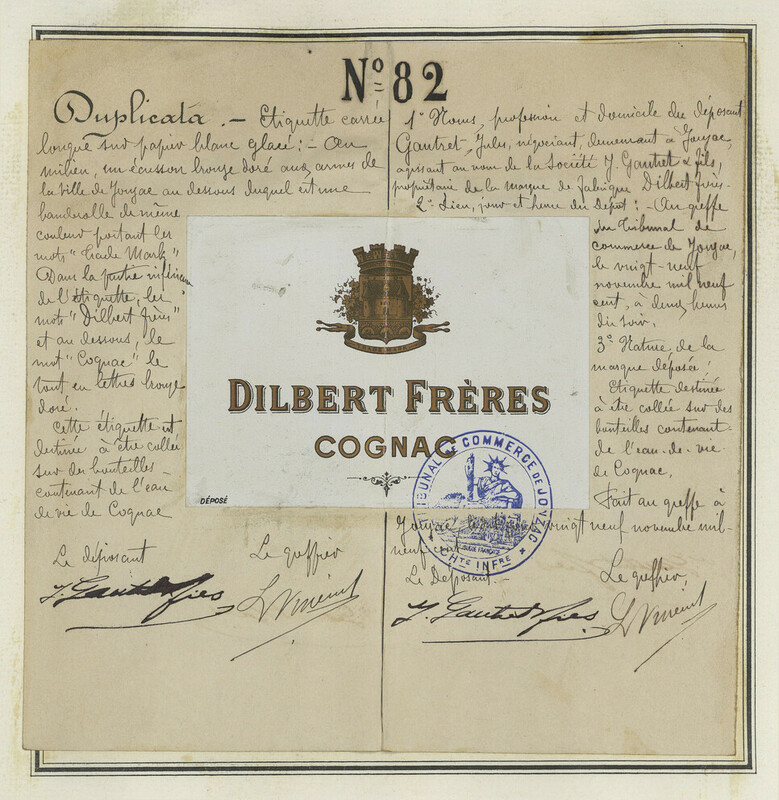 Nº 82
Duplicata. — Etiquette carrée
longue sur papier blanc glacé : — Au
milieu, un écusson bronze doré aux armes de
la ville de Jonzac au dessous duquel est une
banderolle de même
couleur portant les
mots "Trade Mark"
Dans la partie inférieure
de l'étiquette, les
mots "Dilbert frères"
et au dessous, le
mot "Cognac" le
tout en lettres bronze
doré.
Cette étiquette est
destinée à être collée
sur des bouteilles
contenant de l'eau
de vie de Cognac
Le déposant
Le greffier
J. Gautret & fils
1º Noms, profession et domicile du déposant
Gautret, Jules, négociant, demeurant à Jonzac,
agissant au nom de la Société J. Gautret & fils,
propriétaire de la marque de fabrique Dilbert frères.
2º Lieu, jour et heure du dépôt : — Au greffe
du Tribunal de
commerce de Jonzac,
le vingt-neuf
novembre mil neuf
cent, à deux heures
du soir.
3º Nature de la
marque déposée :
Etiquette destinée
à être collée sur des
bouteilles contenant
de l'eau-de-vie
de Cognac.
Fait au greffe à
Jonzac, vingt neuf novembre mil-
neuf cent
Le Déposant.
Le greffier,
J. Gautret & fils
TRADE MARK
DILBERT FRÈRES
COGNAC
DÉPOSÉ
TRIBUNAL DE COMMERCE DE JONZAC
RÉPUBLIQUE FRANÇAISE
* CHTE INFRE *